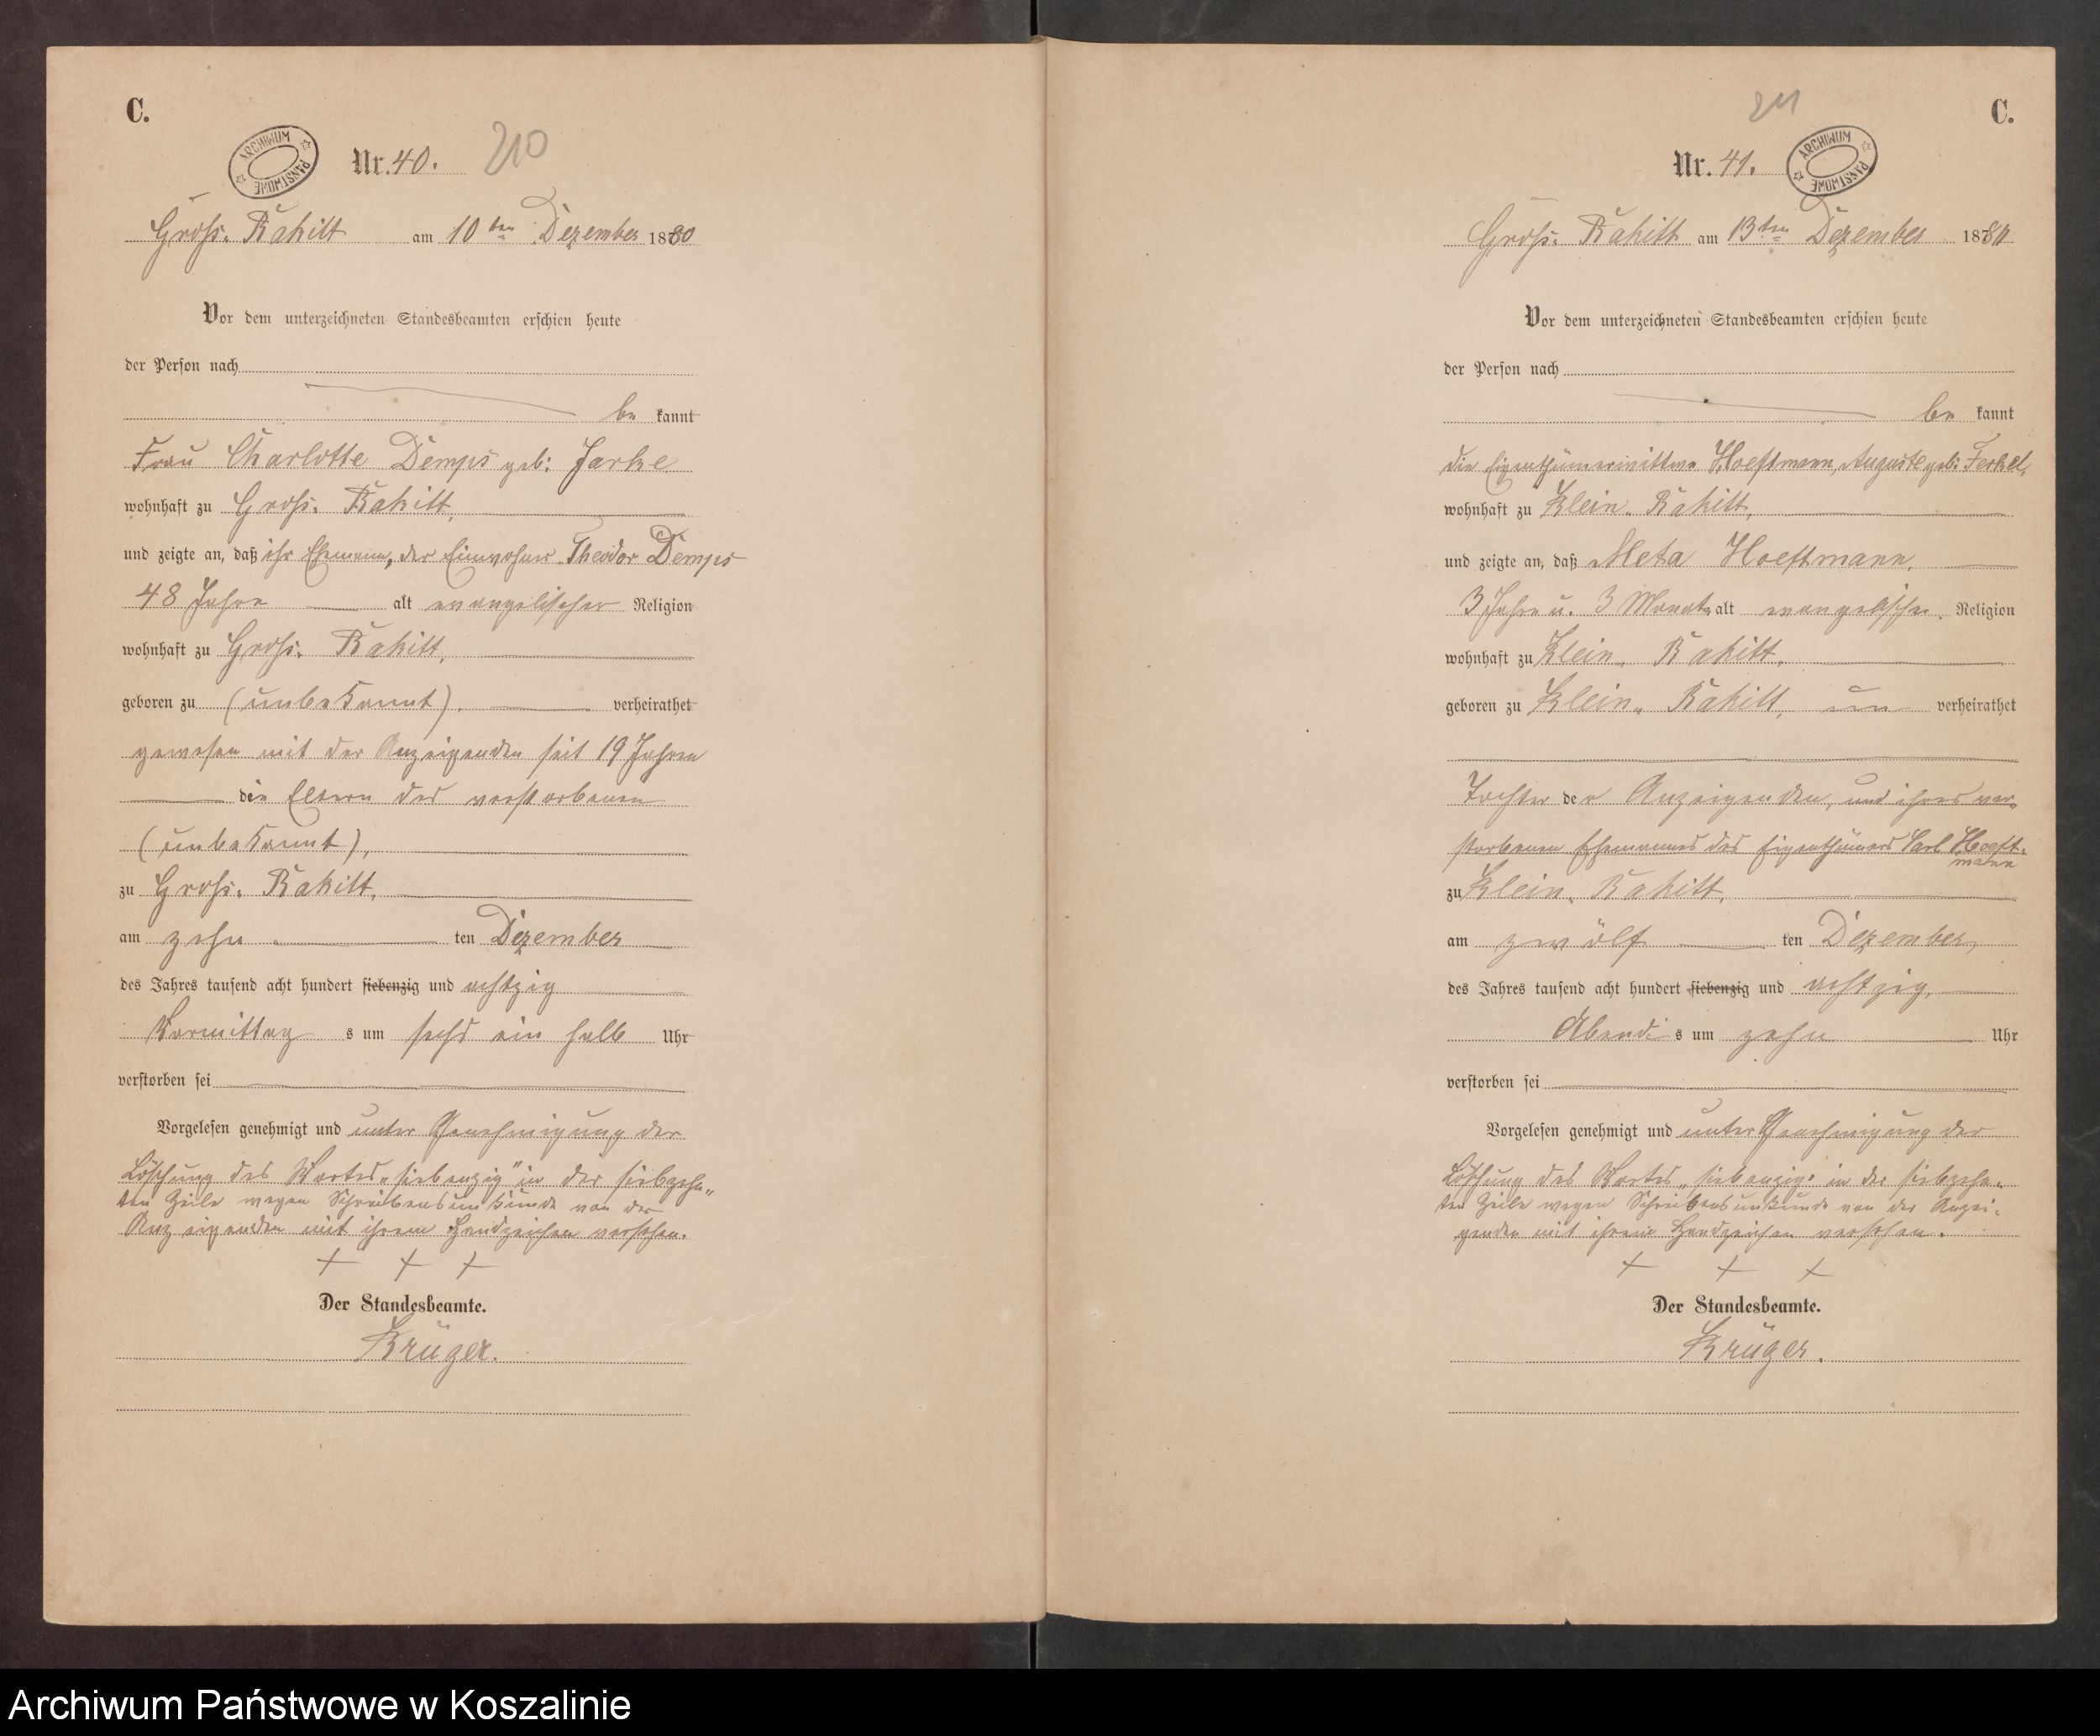 C.
ARCHIWUM PAŃSTWOWE
Nr. 40. 210
Groß. Rakitt am 10ten Dezember 1880
Vor dem unterzeichneten Standesbeamten erschien heute
der Person nach
be kannt
Frau Charlotte Demps geb: Jarke
wohnhaft zu Groß. Rakitt,
und zeigte an, daß ihr Ehemann, der Einwohner Theodor Demps
48 Jahre alt evangelischer Religion
wohnhaft zu Groß. Rakitt,
geboren zu (unbekannt). verheirathet
gewesen mit der Anzeigenden seit 19 Jahren
die Eltern des verstorbenen
(unbekannt),
zu Groß. Rakitt,
am zehn ten Dezember
des Jahres tausend acht hundert siebenzig und achtzig
Vormittag s um sechs ein halb Uhr
verstorben sei
Vorgelesen genehmigt und unter Genehmigung der
Löschung des Wortes „siebenzig" in der siebzehn„
ten Zeile wegen Schreibensunkunde von der
Anzeigenden mit ihrem Handzeichen versehen.
+ + +
Der Standesbeamte.
Krüger.
211
C.
Nr. 41.
ARCHIWUM PAŃSTWOWE
Groß. Rakitt am 13ten Dezember 1880
Vor dem unterzeichneten Standesbeamten erschien heute
der Person nach
be kannt
die Eigenthümerwittwe Hoeftmann, Auguste geb: Ferkel,
wohnhaft zu Klein. Rakitt,
und zeigte an, daß Meta Hoeftmann,
3 Jahre u. 3 Monate alt evangelischer Religion
wohnhaft zu Klein. Rakitt,
geboren zu Klein. Rakitt, un verheirathet
Tochter der Anzeigenden, und ihres ver„
storbenen Ehemannes des Eigenthümers Carl Hoeft„
mann
zu Klein. Rakitt,
am zwölf ten Dezember,
des Jahres tausend acht hundert siebenzig und achtzig,
Abend s um zehn Uhr
verstorben sei
Vorgelesen genehmigt und unter Genehmigung der
Löschung des Wortes „siebenzig" in der siebzehn„
ten Zeile wegen Schreibensunkunde von der Anzei„
genden mit ihrem Handzeichen versehen.
+ + +
Der Standesbeamte.
Krüger.
Archiwum Państwowe w Koszalinie